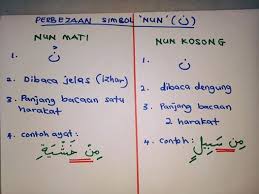 PERBEZAAN SIMBOL 'NUN' (ن)
NUN MATI
1. نْ
2. Dibaca jelas (Izhar)
3. Panjang bacaan satu harakat
4. contoh ayat:
مِنْ خَشْيَةِ
NUN KOSONG
1. ن
2. dibaca dengung
3. Panjang bacaan 2 harakat
4. contoh:
مِن سَبِيلٍ